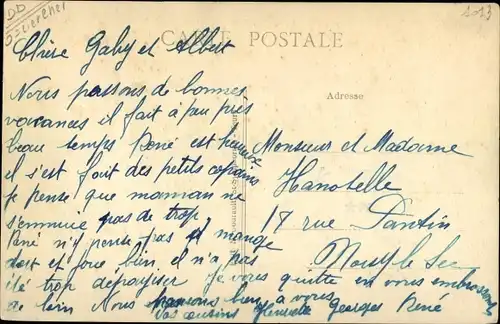 1013
CARTE POSTALE
Chère Gaby et Albert
Nous passons de bonnes
vacances il fait à peu près
beau temps René est heureux
il s'est fait des petits copains
je pense que maman ne
s'ennuie pas de trop
René n'y pense pas il mange
dort et joue bien, il n'a pas
été trop dépayser je vous quitte en vous embrassant
de loin Nous pensons bien à vous
Vos cousins Georges René
Adresse
Monsieur et Madame
Hanotelle
17 rue Pantin
Noisy le Sec